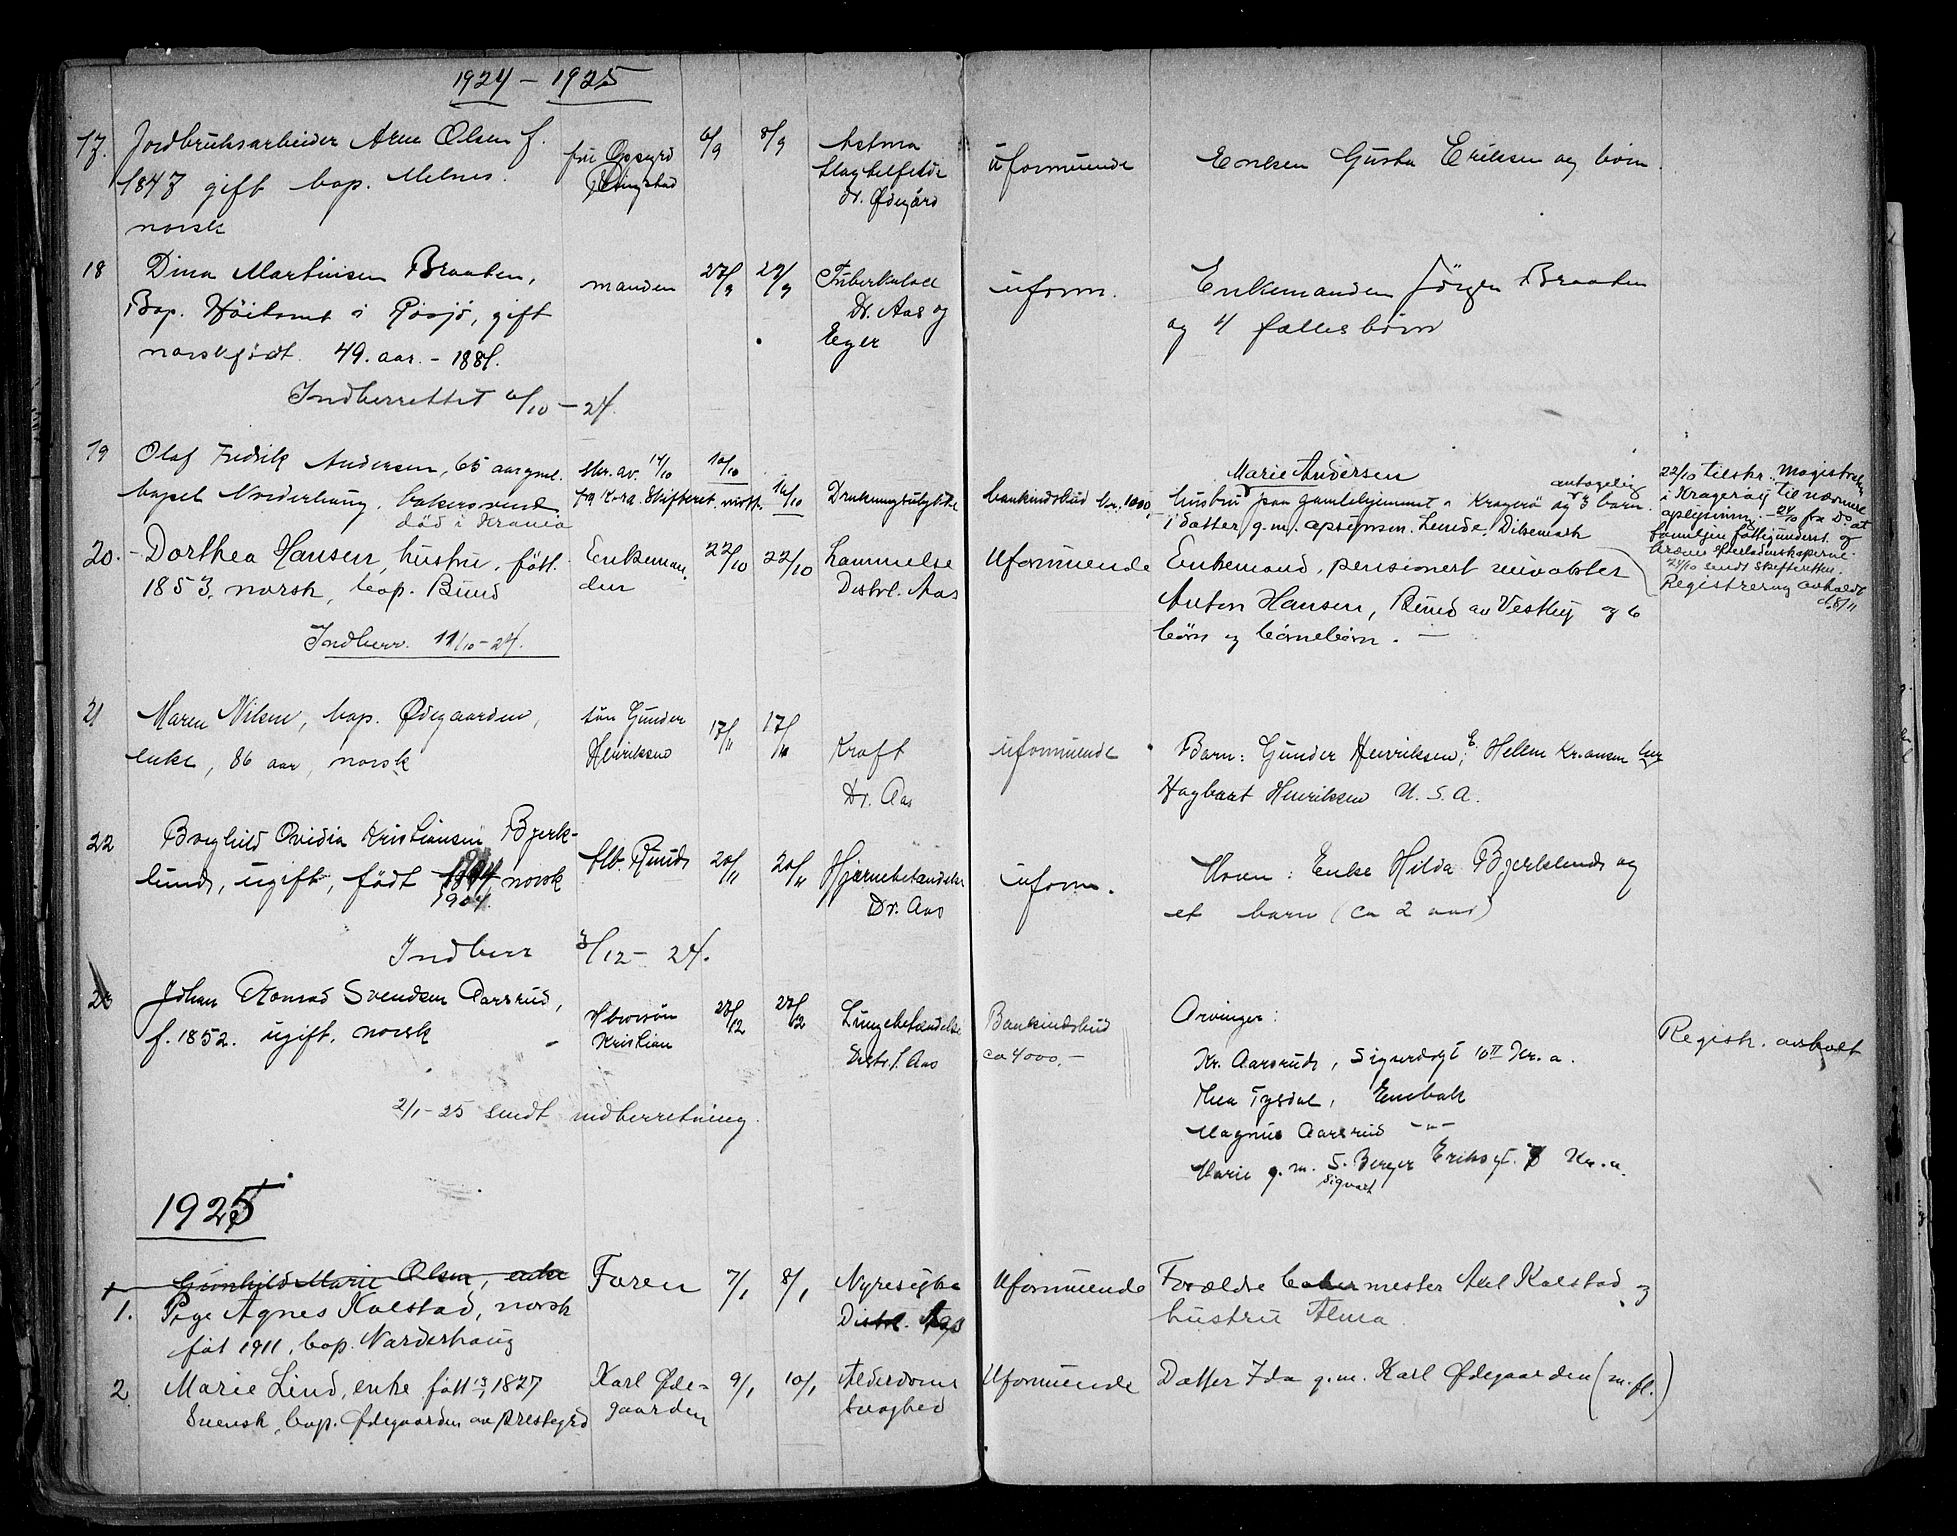 1924 - 1925
17. Jordbruksarbeider Arne Olsen f.
1847 gift bop. Melnes.
norsk
6/9 8/9
Astma
Slagtilfelde
dr. Ødegård
uformuende
Enken Gusta Eriksen og børn
18 Dina Martinsen Braaten,
Bop. Høitomt i gift
norskfødt. 49. aar. - 1881.
manden
27/9 29/9
Tuberkulose
Dr. Aas og
Eger
uform.
Enkemanden Jörgen Braaten
og 4 fælles børn
Indberettet 6/10 - 24.
19 Olaf Fredrik Andersen, 65 aar gml.
bopel Norderhaug, bakersvend
død i Krania
Skr. av. 14/10 16/10
fra Kr.a. Skifteret mott. 16/10
Drukningsulykke
bankindskud kr. 1000,-
Marie Andersen
antagelig
hustru paa gamlehjemmet i Kragerø og 3 barn.
1 datter g.m. opsynsm. Lunde, Dikemark
22/10 tilskr. Magistraten
i Kragerø til nærmere
oplysning. - 24/10 fra Do at
familjen fattigunderst. og
Registrering avholdt
d. 8/11
20. - Dorthea Hansen, hustru, født
1853, norsk, bop. Bund
Enkeman-
den
22/10 22/10
Lammelse
Distrl. Aas
Uformuende
Enkemand, pensionert
Anton Hansen, Bund av Vestby og 6
børn og børnebørn. -
Indberr. 11/10 - 24.
21 Maren Nilsen, bop. Ødegaarden,
enke, 86 aar, norsk
søn Gunder
Henriksen
17/11 17/11
Kræft
Dr. Aas
uformuende
Barn: Gunder Henriksen, Hellem Kr.ansen her
Hagbart Henriksen U.S.A.
22 Borghild Ovidia Kristiansen Bjerk-
lund, ugift, født norsk
1904.
20/11 20/11
Hjernebetændelse
Dr. Aas
uform.
Moren: Enke Hilda Bjerklund og
et barn (ca 2 aar)
Indberr 3/12 - 24.
23 Johan Konrad Svendsen Aarsrud,
f. 1852. ugift, norsk
Kristian
27/12 27/12
Lungebetændelse
Distr. l. Aas
Bankindskud
ca 4000,-
Arvinger:
Kr. Aarsrud, Sigurdsgt 10 II Kr.a.
Thea Tysdal, Enebak
Magnus Aarsrud -"-
Marie g.m. S. Berger Eriksgt. Kr.a.
Sigvart
Registr. avholt
2/1 - 25 sendt indberretning.
1925
1 Gunhild Marie Olsen, enke
1. Page Agnes Kolstad, norsk
føt 1911, bop. Narderhaug
Faren
7/1 8/1
Nyresygdom
Distrl. Aas
Uformuende
Forældre mester Axel Kolstad og
hustru Alma.
2. Marie Lind, enke født 1827
Svensk, bop. Ødegaarden av prestegrd
Karl Øde-
gaarden
9/1 10/1
Alderdoms
svaghed
Uformuende
Datter Ida g.m. Karl Ødegaarden (m.fl.)